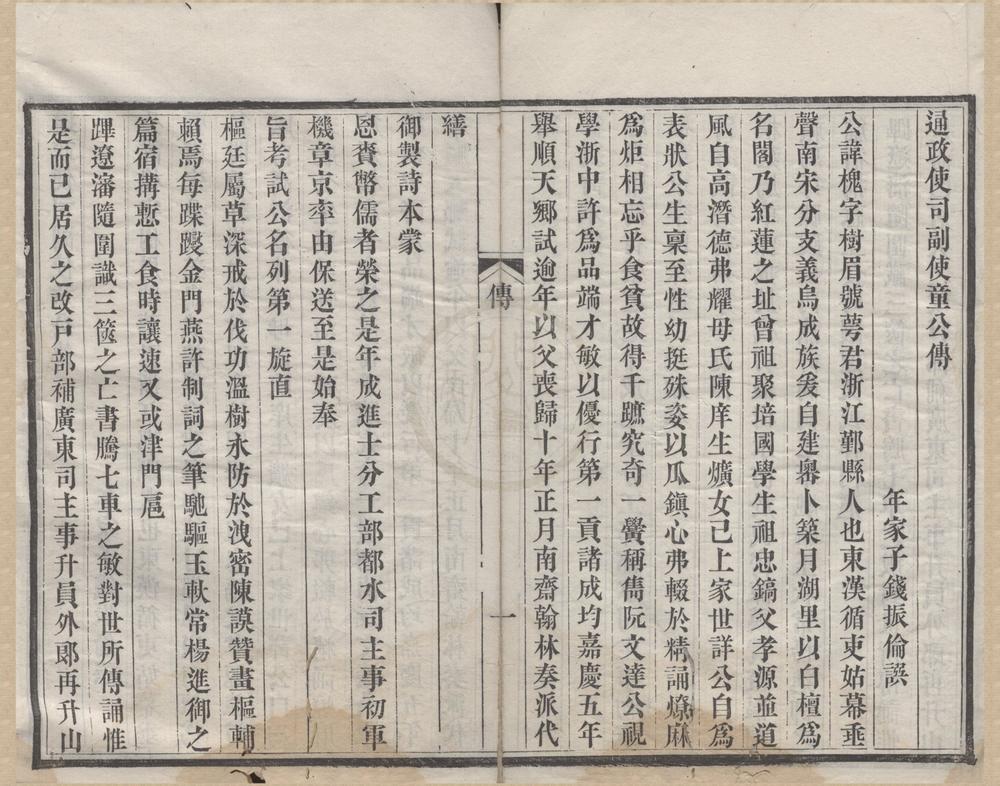 通政使司副使童公傳
年家子錢振倫譔
公諱槐字樹眉號萼君浙江鄞縣人也東漢循吏姑幕垂
聲南宋分支義烏成族爰自建嶴卜築月湖里以白檀爲
名閣乃紅蓮之址曾祖聚培國學生祖忠鎬父孝源並道
風自高潛德弗耀母氏陳庠生爌女已上家世詳公自爲
表狀公生稟至性幼挺殊姿以瓜鎭心弗輟於精誦燎麻
爲炬相忘乎食貧故得千蹠究奇一黌稱雋阮文達公視
學浙中許爲品端才敏以優行第一貢諸成均嘉慶五年
舉順天鄉試逾年以父喪歸十年正月南齋翰林奏派代
傳
一
繕
御製詩本蒙
恩賚幣儒者榮之是年成進士分工部都水司主事初軍
機章京率由保送至是始奉
旨考試公名列第一旋直
樞廷屬草深戒於伐功溫樹永防於洩密陳謨贊畫樞輔
賴焉每蹀躞金門燕許制詞之筆馳驅玉軑常楊進御之
篇宿搆慙工食時讓速又或津門扈
蹕遼瀋隨圍識三篋之亡書騰七車之敏對世所傳誦惟
是而已居久之改戸部補廣東司主事升員外郎再升山